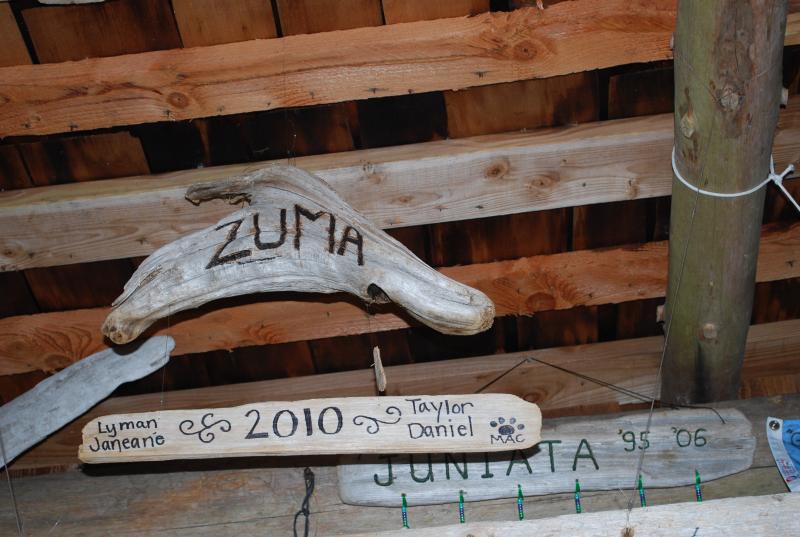 ZUMA
Lyman
Janeane
2010
Taylor
Daniel
MAC
JUNIATA '95 '06